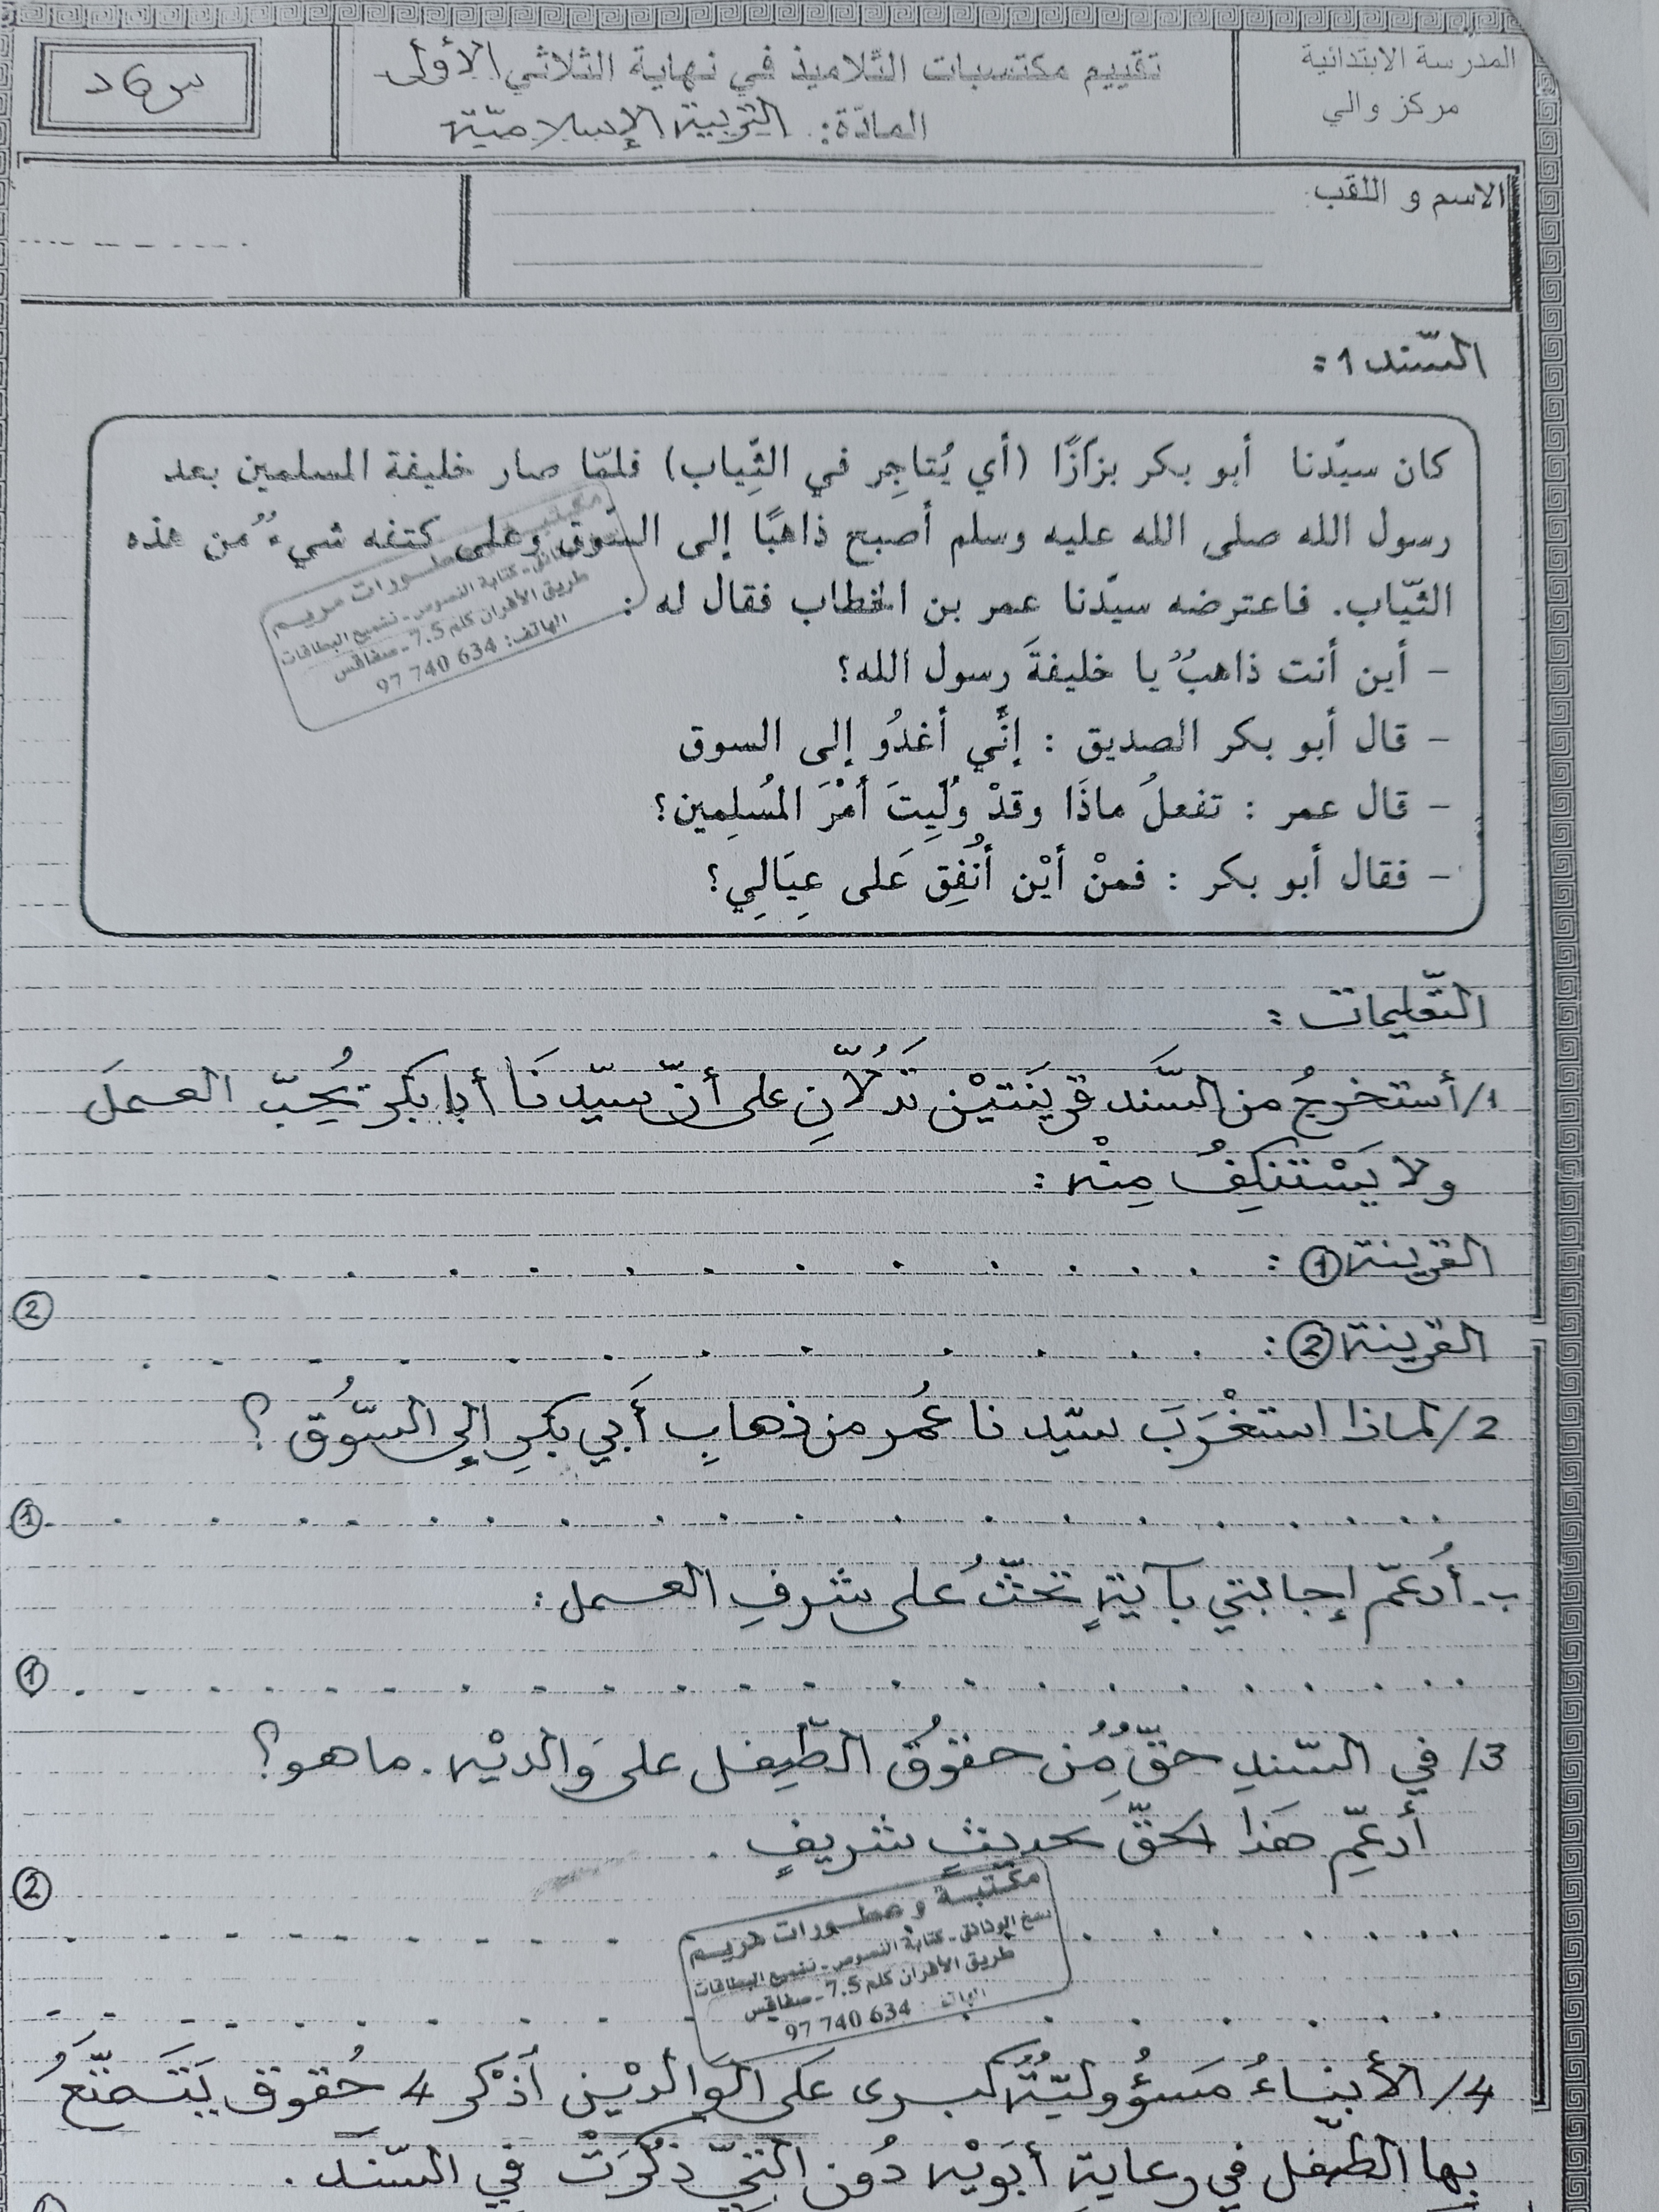 المدرسة الابتدائية
مركز والي
تقييم مكتسبات التلاميذ في نهاية الثلاثي الأولى
المادّة: التربية الإسلاميّة
س6د
الاسم و اللقب
السّند 1:
كان سيّدنا أبو بكر بزازًا (أي يُتاجِر في الثِّياب) فلمّا صار خليفة المسلمين بعد
رسول الله صلى الله عليه وسلم أصبح ذاهبًا إلى السّوق وعلى كتفه شيءٌ من هذه
الثّياب. فاعترضه سيّدنا عمر بن الخطاب فقال له :
– أين أنت ذاهبٌ يا خليفةَ رسول الله؟
– قال أبو بكر الصديق : إنَّي أغدُو إلى السوق
– قال عمر : تفعلُ ماذَا وقدْ وُلِّيتَ أمْرَ المُسلِمين؟
– فقال أبو بكر : فمنْ أيْن أُنْفِق عَلى عِيَالِي؟
مكتبة و مطورات مريم
كتابة النصوص - تقميع البطاقات
طريق الأفران كلم 7.5 - صفاقس
الهاتف: 634 740 97
التّعليمات :
1/ أستخرجُ من السّند قرينَتيْن تَدُلّانِ على أنّ سيّدنَا أبا بكر يُحِبّ العملَ
ولا يَسْتنكِفُ مِنْه :
القرينة ① :
②
القرينة ② :
2/ لماذا استغْرَبَ سيّدنا عُمر من ذهابِ أَبي بكرِ إلى السّوُق ؟
①
ب. أُدعّم إجابتي بآيةٍ تحثّ على شرفِ العمل :
①
3/ في السّندِ حقٌّ مِن حقوُق الطّفِل على وَالديْه. ما هو؟
أدعِّم هَذا الحقّ بحديثٍ شريفٍ .
②
مكتبة و مطورات مريم
نسخ الوثائق - كتابة النصوص - تقميع البطاقات
طريق الأفران كلم 7.5 - صفاقس
الهاتف: 634 740 97
4/ الأبناءُ مَسؤُوليّةٌ كبرى على الوَالديْن أذْكر 4 حُقوق يَتَمتّعُ
بها الطّفل في رعاية أبَويْه دُون التّي ذُكرَتْ في السّندَ .